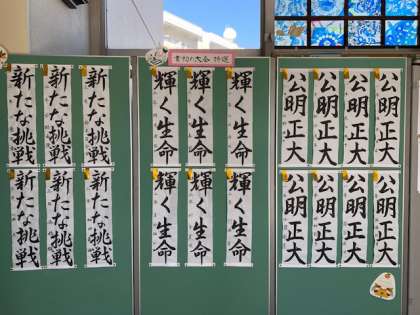 書初め大会 特選
新たな挑戦
新たな挑戦
新たな挑戦
新たな挑戦
新たな挑戦
新たな挑戦
輝く生命
輝く生命
輝く生命
輝く生命
輝く生命
輝く生命
公明正大
公明正大
公明正大
公明正大
公明正大
公明正大
公明正大
公明正大